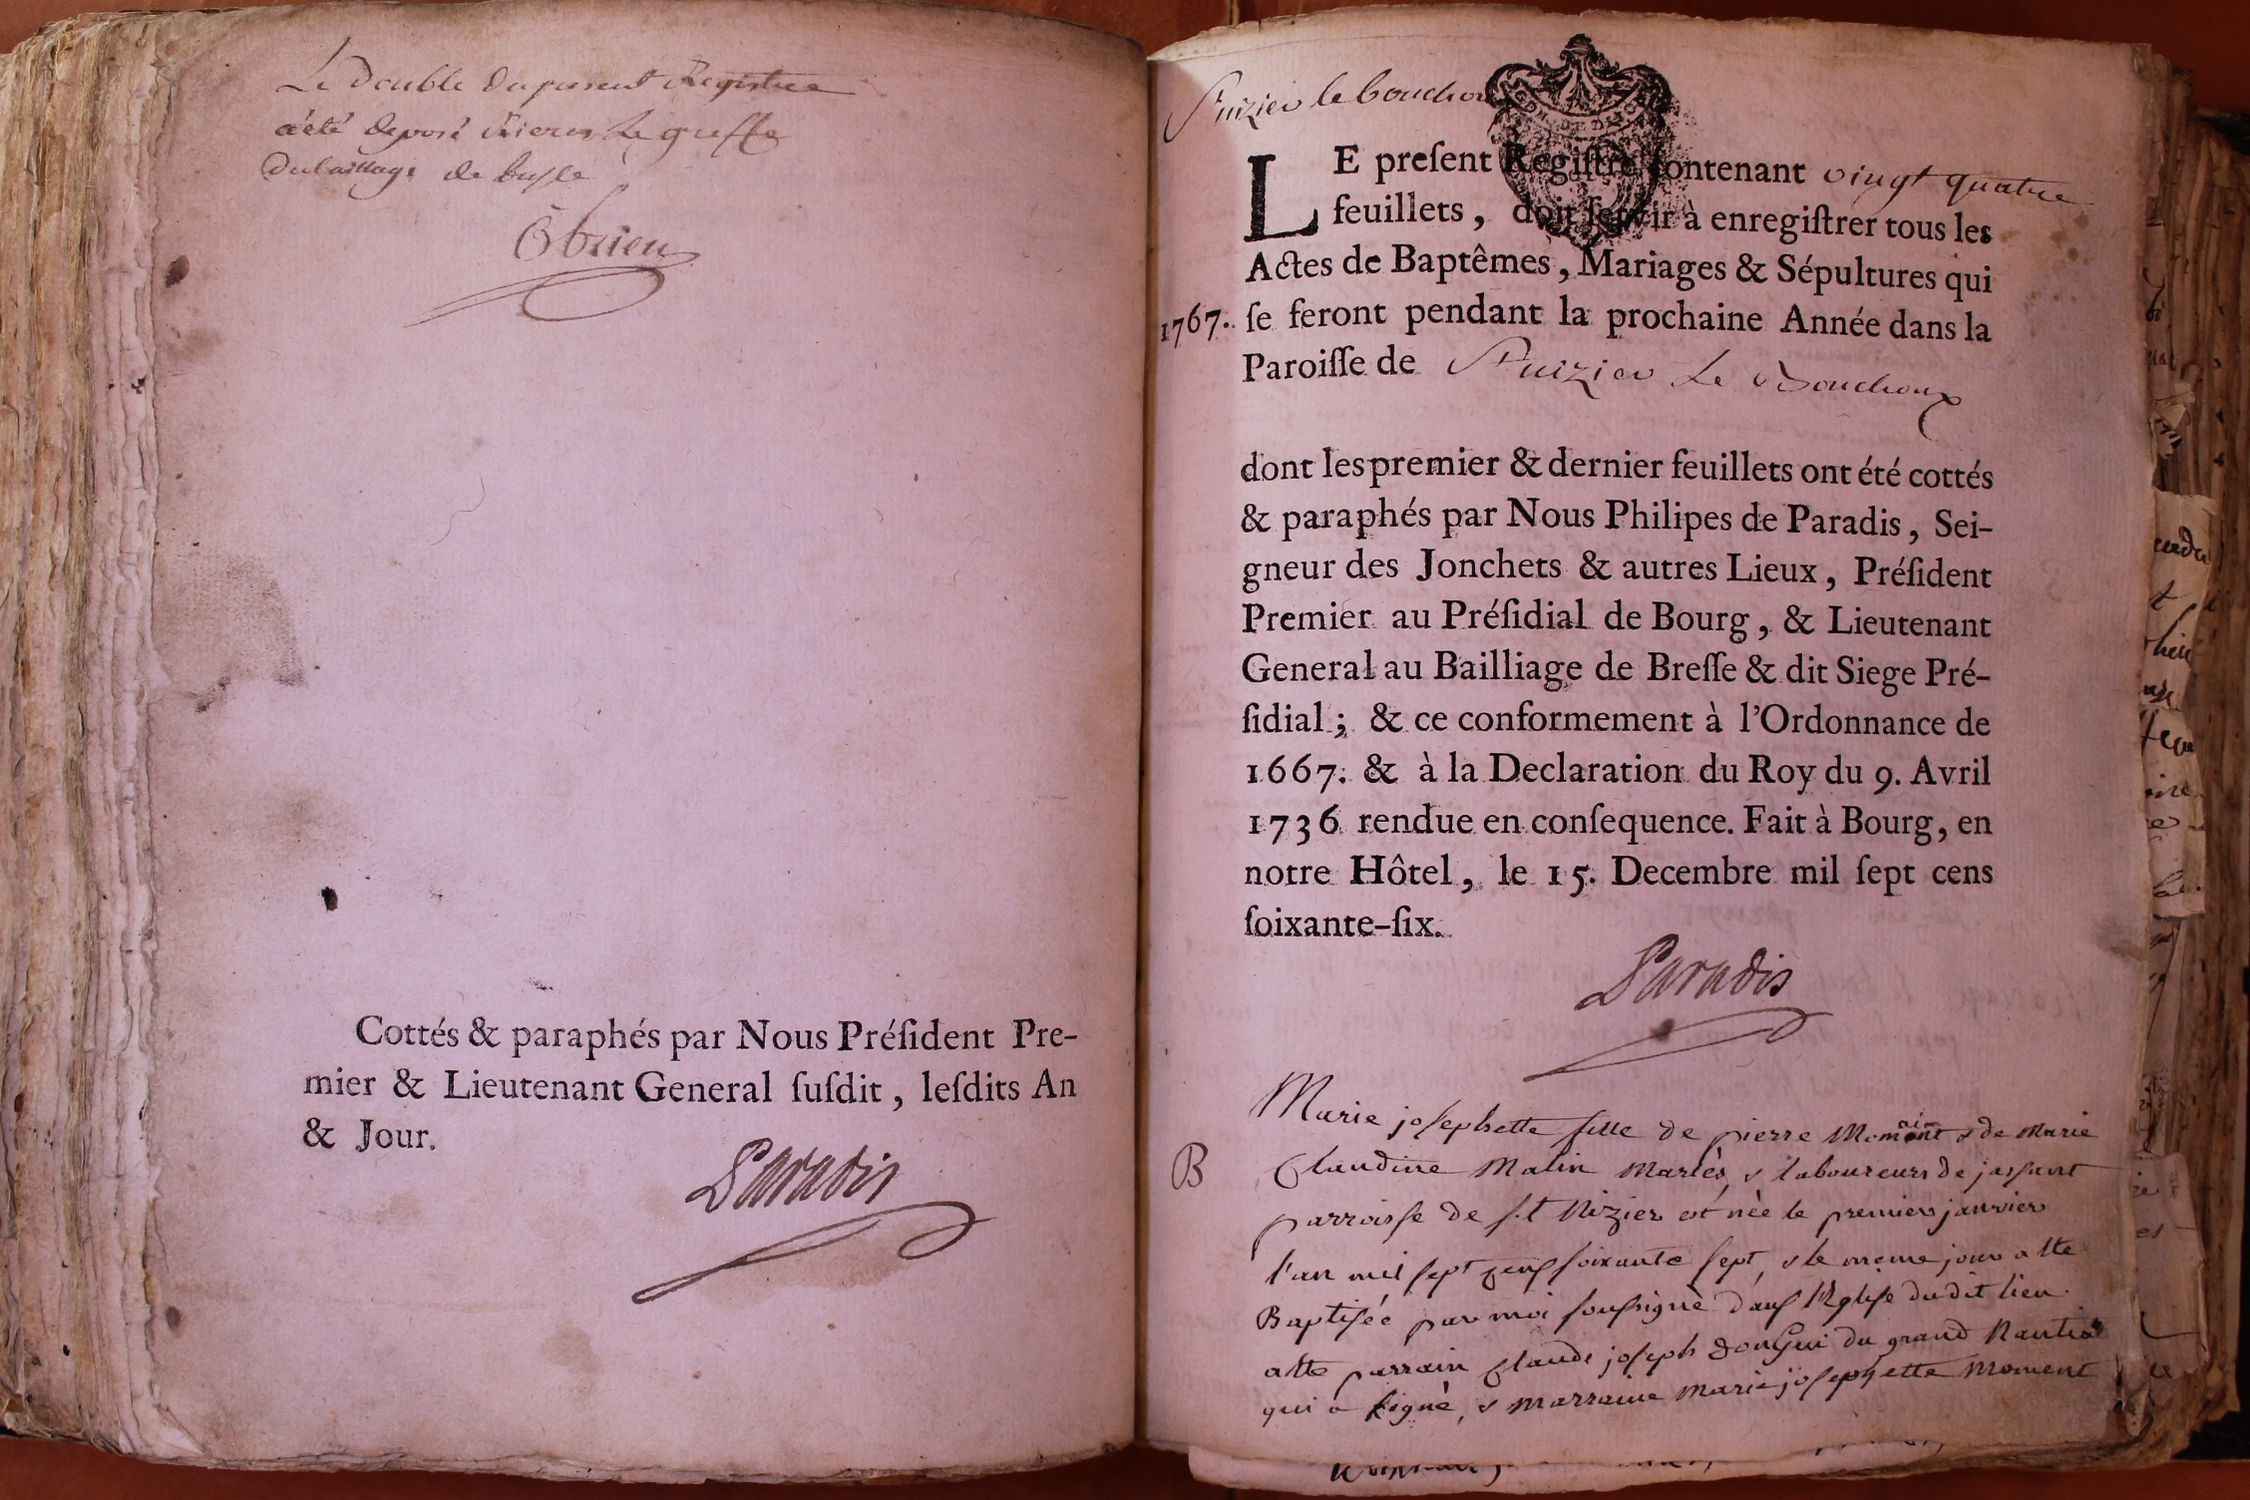 Le double du present Registre
a été deposé rieres le greffe
du bailliage de bresse
Obrien
Cottés & paraphés par Nous Préſident Pre-
mier & Lieutenant General ſuſdit, leſdits An
& Jour.
Paradis
St nizier le bouchoux
LE preſent Regiſtre contenant vingt quatre
feuillets, doit ſervir à enregiſtrer tous les
Actes de Baptêmes, Mariages & Sépultures qui
1767. ſe feront pendant la prochaine Année dans la
Paroiſſe de St nizier Le Bouchoux
dont les premier & dernier feuillets ont été cottés
& paraphés par Nous Philipes de Paradis, Sei-
gneur des Jonchets & autres Lieux, Préſident
Premier au Préſidial de Bourg, & Lieutenant
General au Bailliage de Breſſe & dit Siege Pré-
ſidial; & ce conformement à l'Ordonnance de
1667. & à la Declaration du Roy du 9. Avril
1736 rendue en conſequence. Fait à Bourg, en
notre Hôtel, le 15. Decembre mil ſept cens
ſoixante-ſix.
Paradis
Marie joſephette fille de pierre & de Marie
B Claudine Matin Mariés, & laboureurs de jaſſant
parroiſſe de ſ.t Nizier est née le premier janvier
l'an mil ſept cenſ ſoixante ſept, & le meme jour a Ete
Baptiſée par moi ſouſsigné danſ l'Egliſe du dit lieu
a ete parrain claude joſeph du grand
qui a ſigné, & marraine Marie joſephette Moment